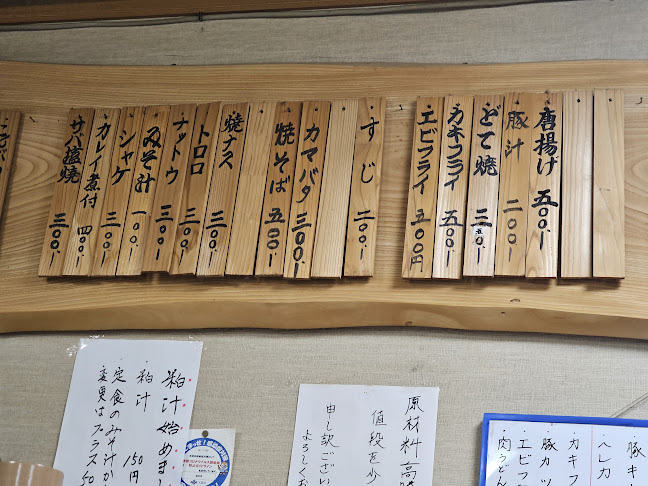 唐揚げ 五〇〇.ー
豚汁 二〇〇.ー
どて焼 三五〇.ー
カキフライ 五〇〇.ー
エビフライ 五〇〇円
すじ 二〇〇.ー
カマバタ 三〇〇.ー
焼そば 五〇〇.ー
焼ナス
トロロ
ナットウ
みそ汁 一〇〇.ー
シャケ
カレイ煮付 四〇〇.ー
サバ塩焼 三〇〇.ー
粕汁始めま
粕汁 150円
定食のみそ汁か
変更はプラス50
原材料高
値段を少
申し訳ござい
よろしくお
豚キ
ヘレカ
カキフ
豚カツ
エビフ
肉うどん